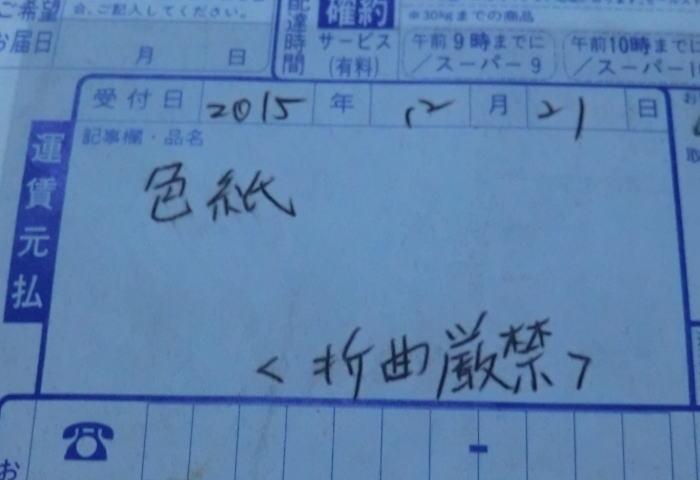 ご希望
お届日
会、ご記入してください。
月 日
配達時間
確約
サービス
(有料)
※30kgまでの商品
午前9時までに
/スーパー9
午前10時までに
/スーパー10
受付日 2015 年 12 月 21 日
記事欄・品名
運賃元払
色紙
<折曲厳禁>
お
取
☎ -
お